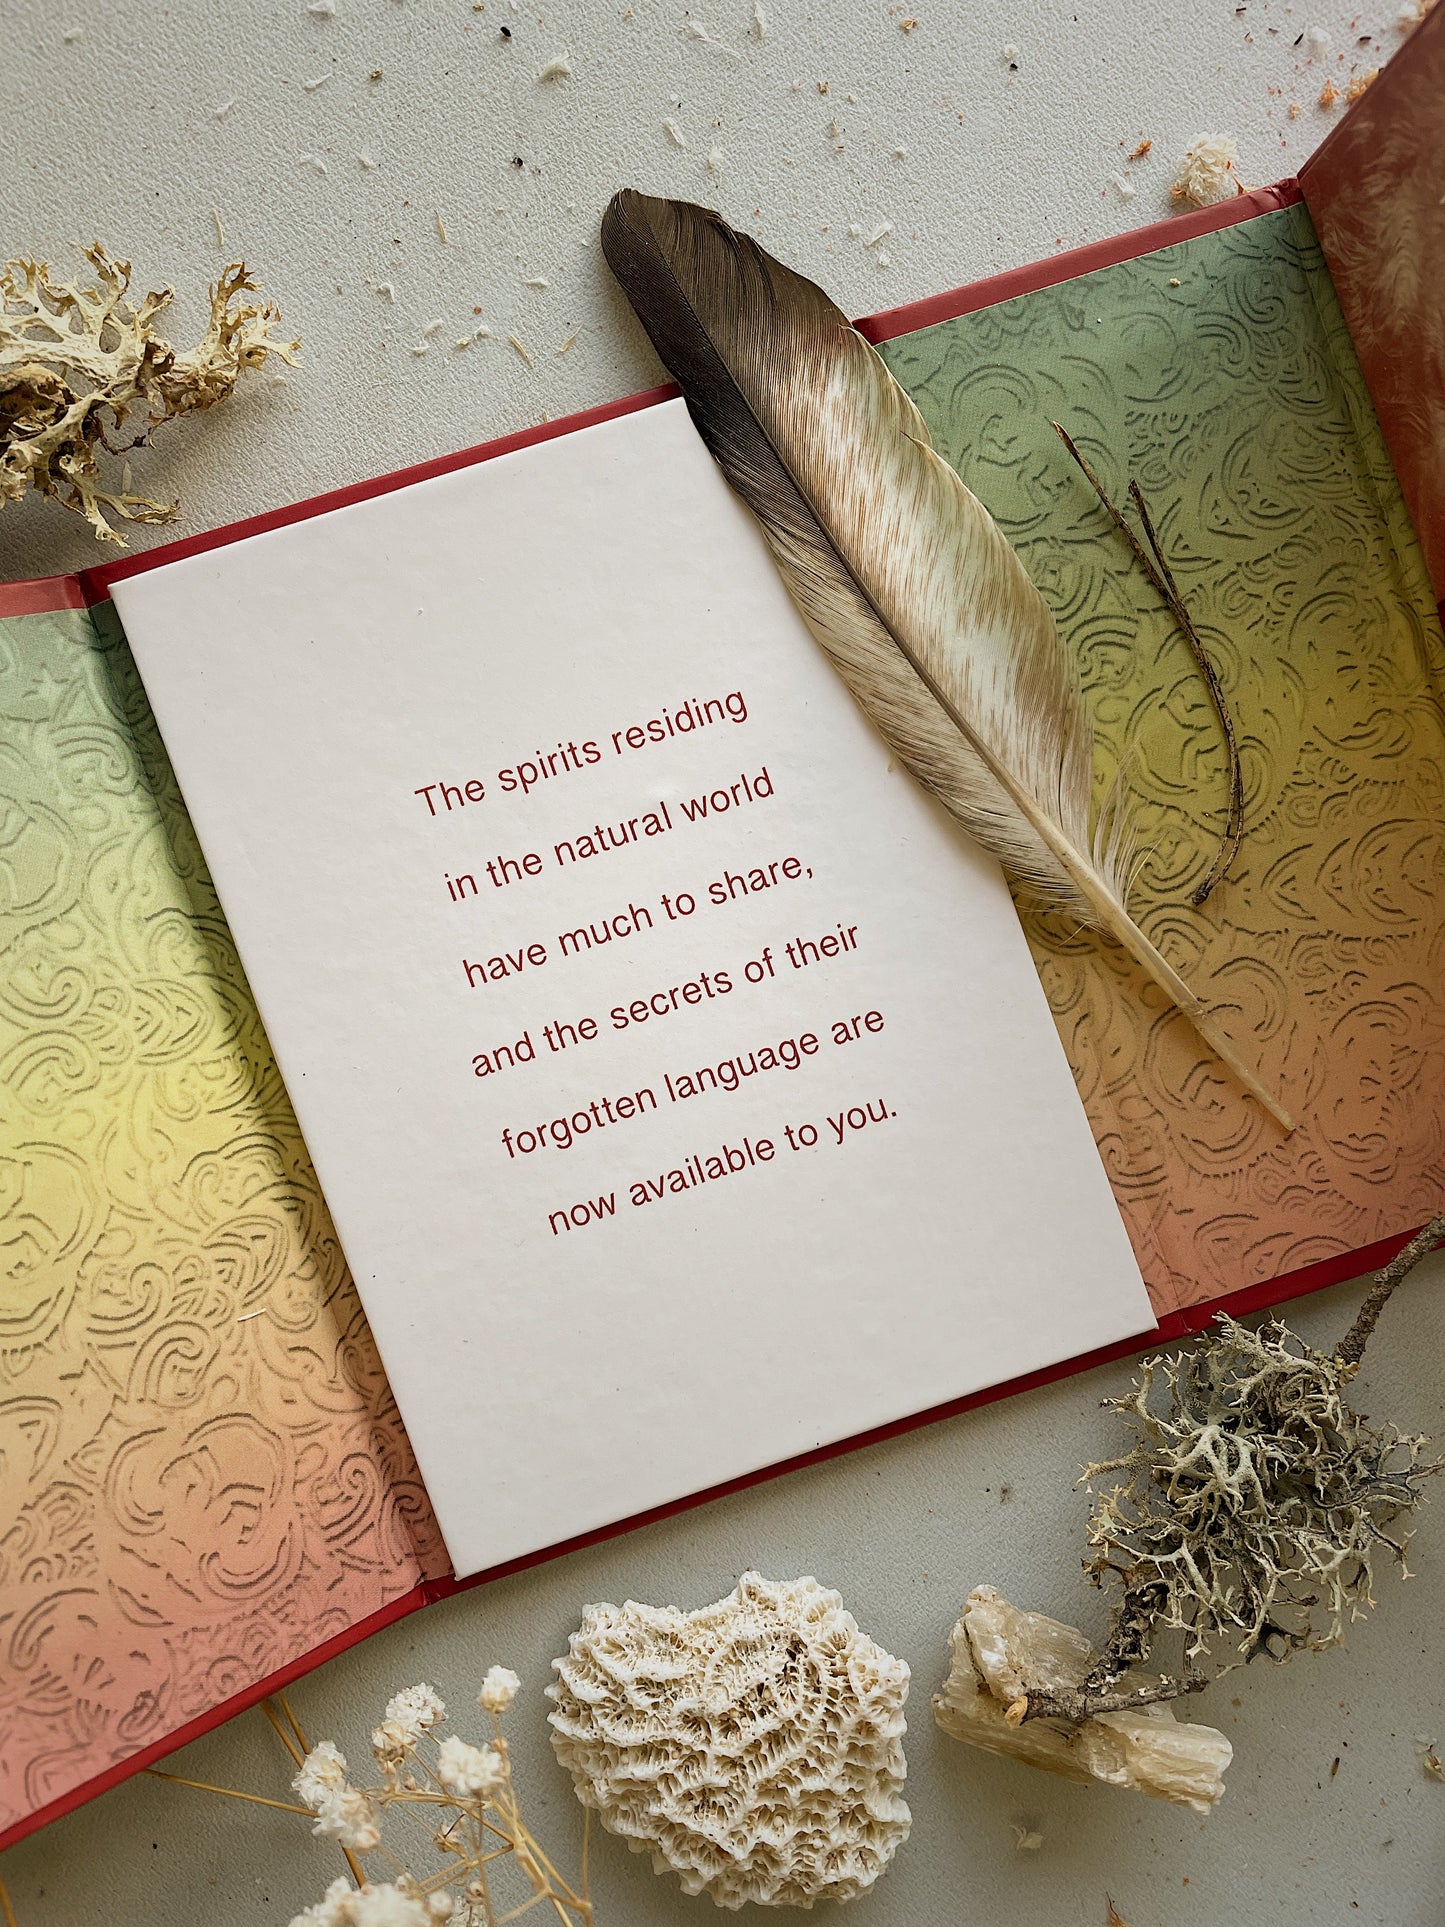 The spirits residing
in the natural world
have much to share,
and the secrets of their
forgotten language are
now available to you.